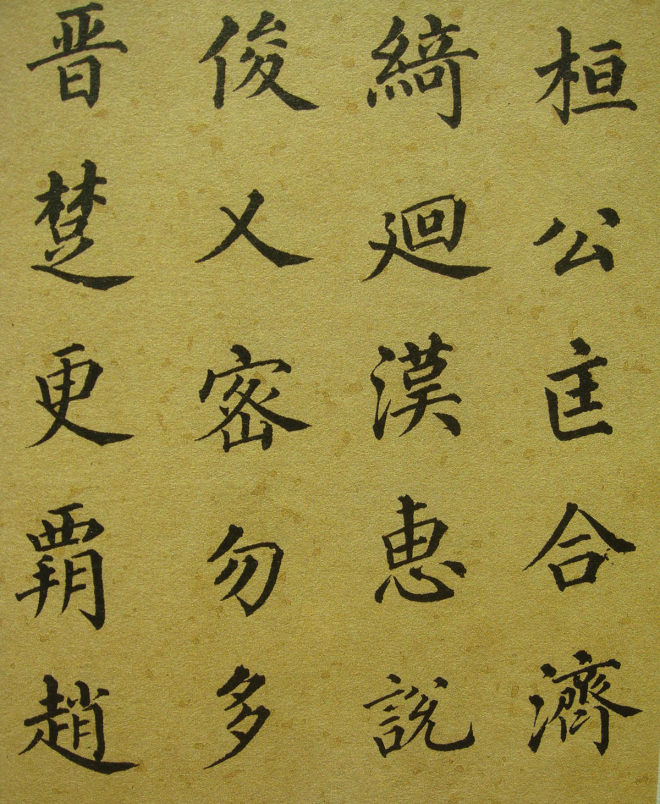 桓公匡合濟
綺廻漢惠說
俊乂密勿多
晋楚更覇趙